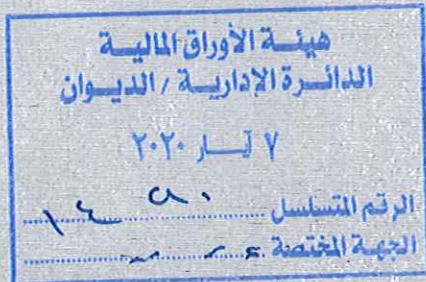 هيئة الأوراق المالية
الدائرة الإدارية / الديوان
٧ أيار ٢٠٢٠
الرقم المتسلسل
الجهة المختصة